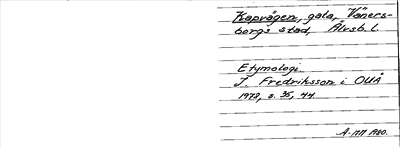 Kapvägen, gata, Väners-
borgs stad, Älvsb. l.
Etymologi.
I. Fredriksson i OUÅ
1978, s. 35, 44.
1980.